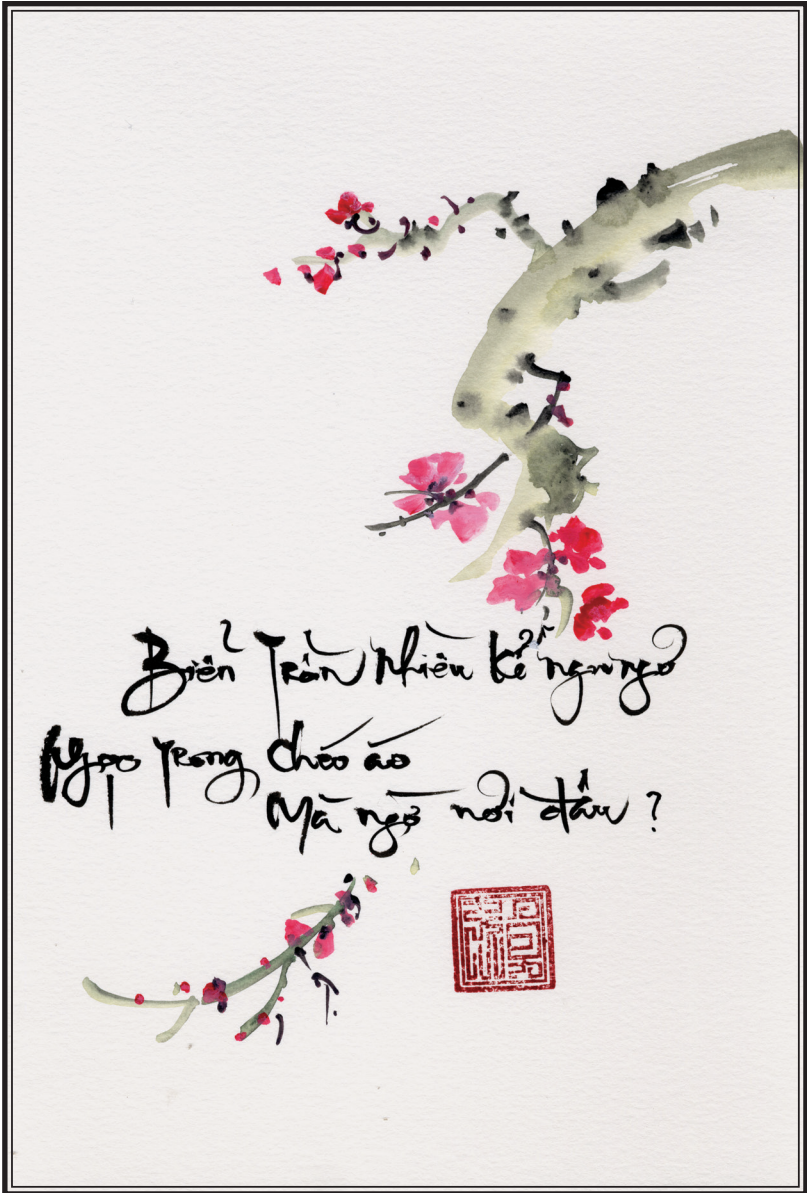 Biển Trần Nhiều kẻ ngu ngơ
Ngọc Trong chéo áo
Mà ngỡ nơi đâu ?